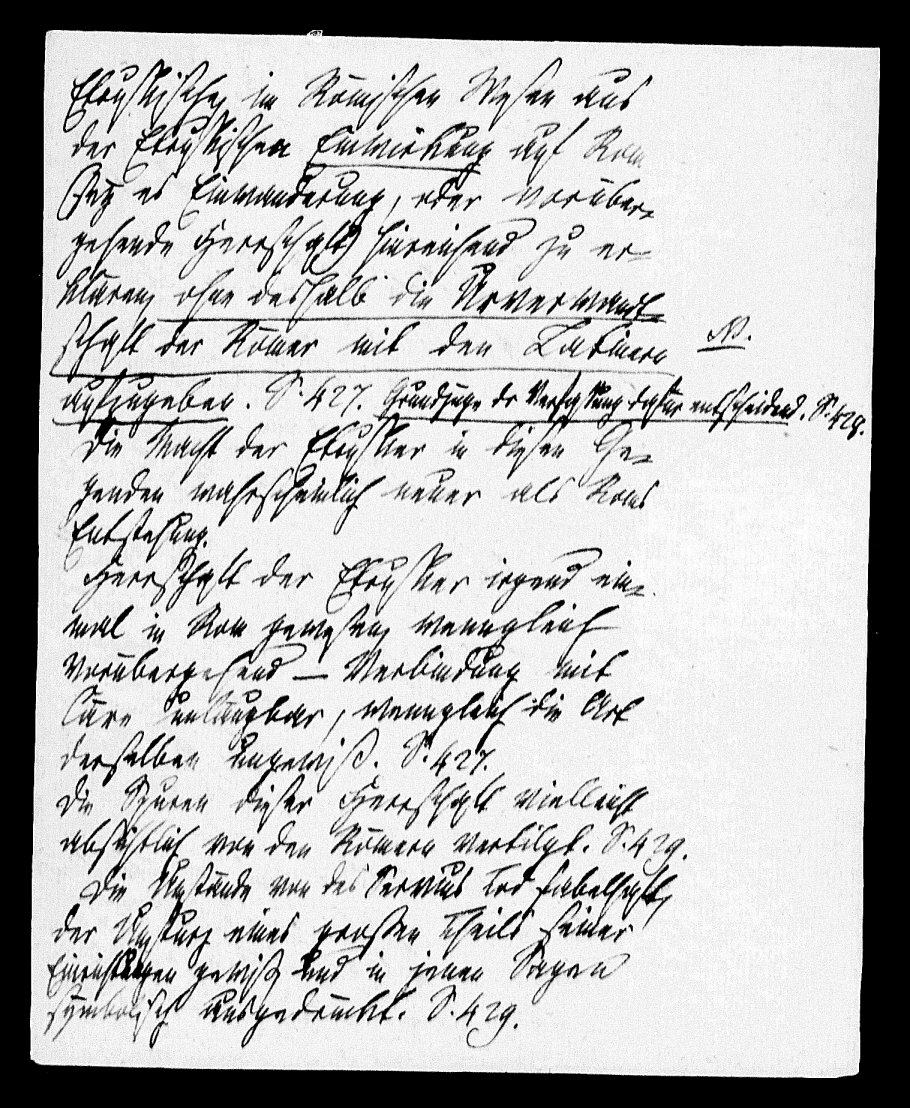 Etruskische im Römischen Wesen aus
der Etruskischen Einwirkung auf Rom
(sey es Einwanderung, oder vorüber-
gehende Herrschaft) hinreichend zu er-
klären, ohne deshalb die Urverwandt-
schaft der Römer mit den Latinern NB.
aufzugeben. S. 427. Grundzüge der Verfassung dafür entscheidend. S. 429.
Die Macht der Etrusker in diesen Ge-
genden wahrscheinlich neuer als Roms
Entstehung.
Herrschaft der Etrusker irgend ein-
mal in Rom gewesen, wenngleich
vorübergehend — Verbindung mit
Cäre unläugbar, wenngleich die Art
derselben ungewiß. S. 427.
Die Spuren dieser Herrschaft vielleicht
absichtlich von den Römern vertilgt. S. 429.
Die Umstände von des Servius Tod fabelhaft,
der Umsturz eines großen Theils seiner
Einrichtungen gewiß und in jenen Sagen
symbolisch ausgedrückt. S. 429.